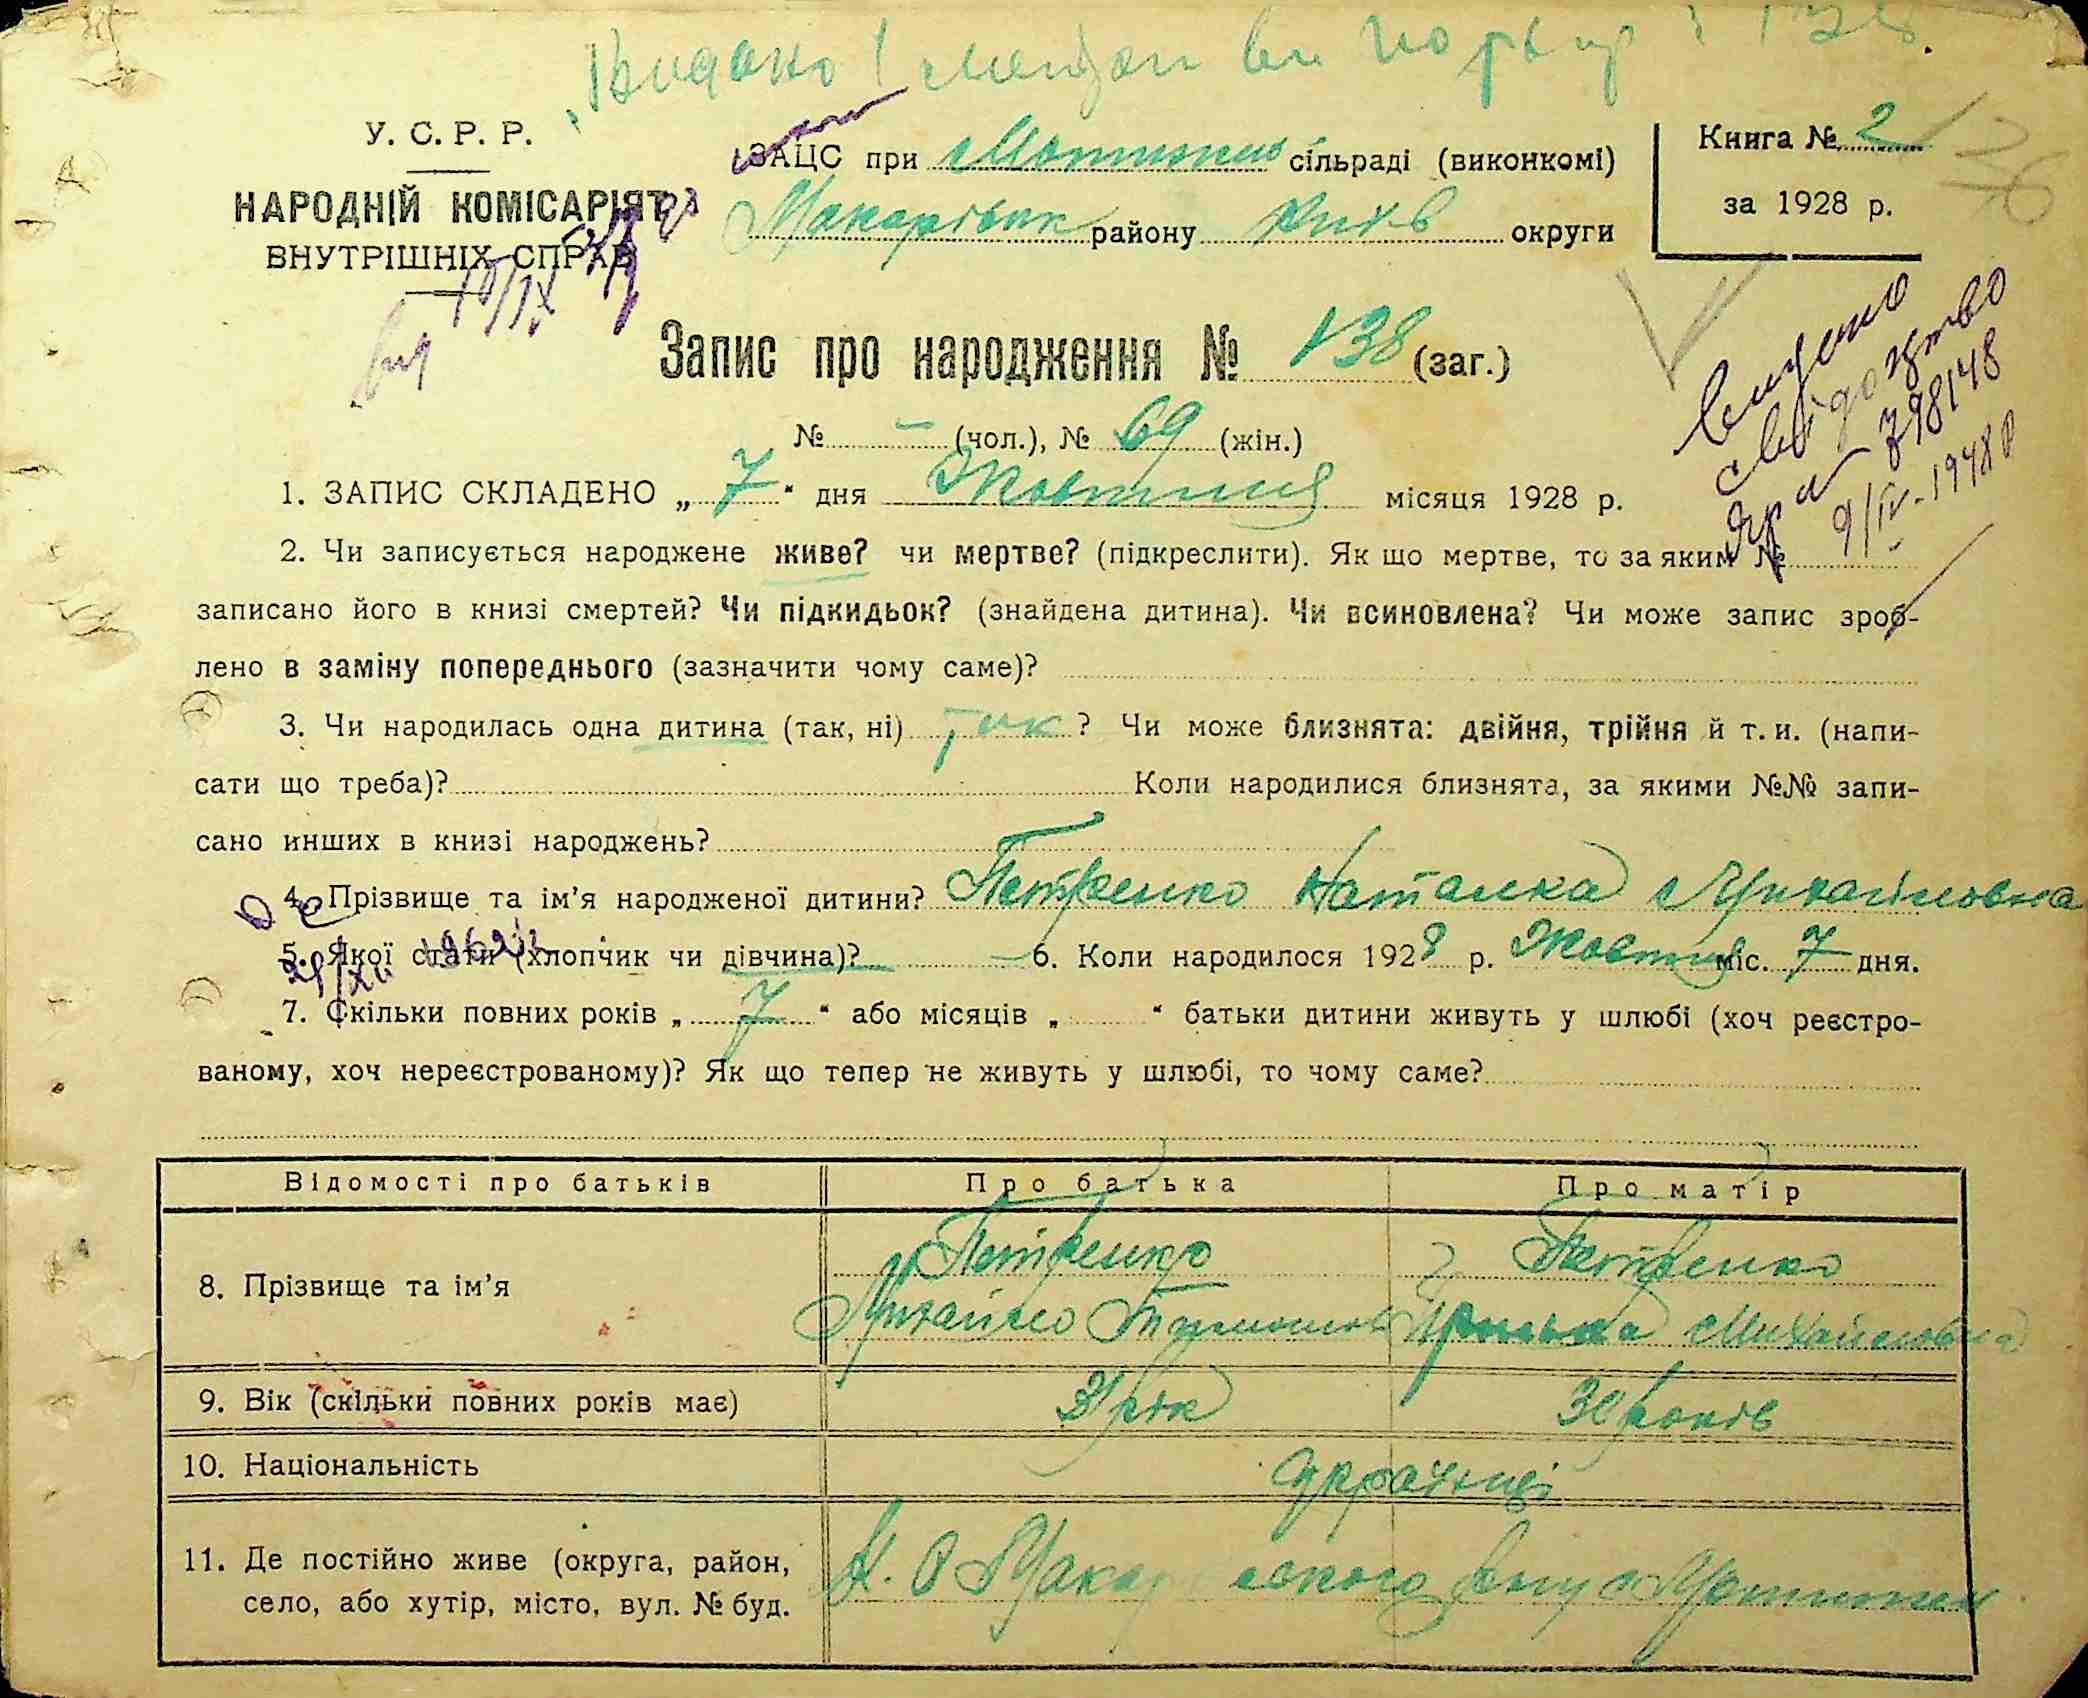 Видано
У. С. Р. Р.
НАРОДНІЙ КОМІСАРІЯТ
ВНУТРІШНІХ СПРАВ
ЗАЦС при Мотижин сільраді (виконкомі)
Макарівськ району Київ округи
Книга № 2
за 1928 р.
36
10/IX
Запис про народження № 138 (заг.)
Видано
свідоцтво
398148
9/IV-1948 р
№ – (чол.), № 69 (жін.)
1. ЗАПИС СКЛАДЕНО „ 7 “ дня Жовтня місяця 1928 р.
2. Чи записується народжене живе? чи мертве? (підкреслити). Як що мертве, то за яким №
записано його в книзі смертей? Чи підкидьок? (знайдена дитина). Чи всиновлена? Чи може запис зроб-
лено в заміну попереднього (зазначити чому саме)?
3. Чи народилась одна дитина (так, ні) так ? Чи може близнята: двійня, трійня й т. и. (напи-
сати що треба)? Коли народилися близнята, за якими №№ запи-
сано инших в книзі народжень?
4. Прізвище та ім’я народженої дитини? Петренко Наталка Михайловна
5. Якої стати (хлопчик чи дівчина)? 6. Коли народилося 1928 р. Жовтня міс. 7 дня.
7. Скільки повних років „ 7 “ або місяців „ “ батьки дитини живуть у шлюбі (хоч реєстро-
ваному, хоч нереєстрованому)? Як що тепер не живуть у шлюбі, то чому саме?
Відомості про батьків Про батька Про матір
8. Прізвище та ім’я Петренко Петренко
Михайло Тимошов Михайловна
9. Вік (скільки повних років має) 31 рік 30 років
10. Національність українці
11. Де постійно живе (округа, район,
село, або хутір, місто, вул. № буд.